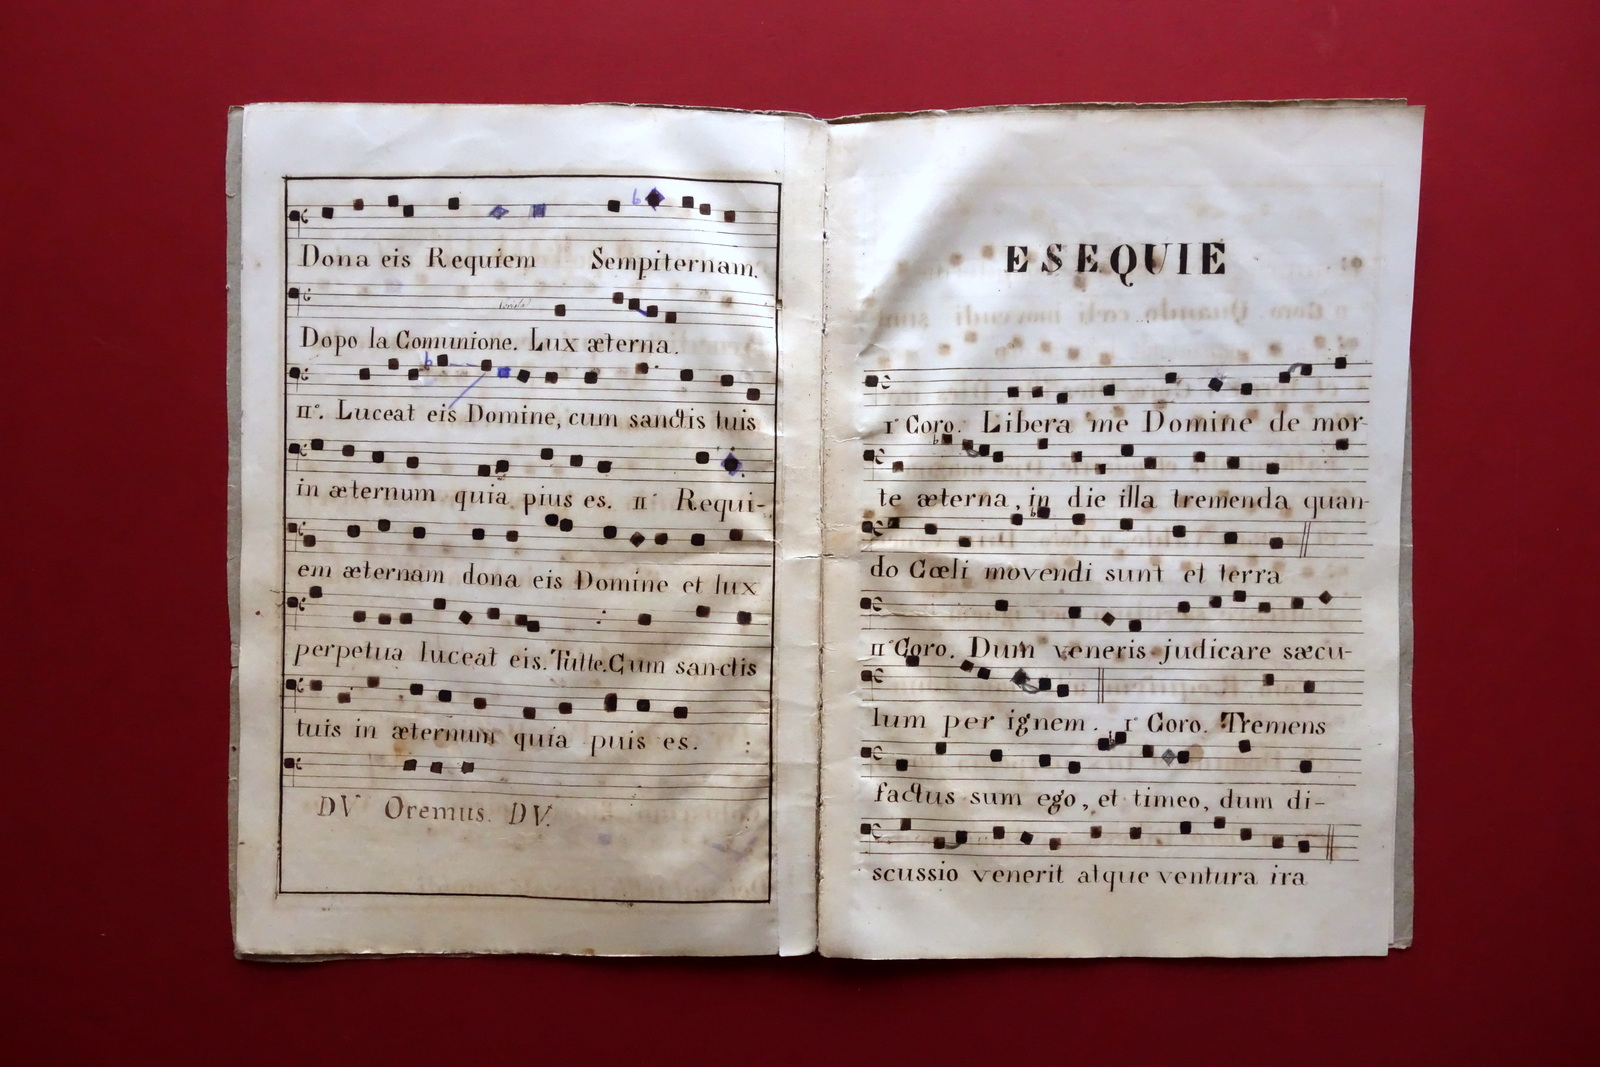 Dona eis Requiem Sempiternam.
Dopo la Comunione. Lux æterna.
IIº. Luceat eis Domine, cum sanctis tuis
in æternum quia pius es. IIº Requi-
em æternam dona eis Domine et lux
perpetua luceat eis. Tutte. Cum sanctis
tuis in æternum quia puis es.
DV Oremus. DV.
ESEQUIE
Iº Coro. Libera me Domine de mor-
te æterna, in die illa tremenda quan-
do Cœli movendi sunt et terra
IIº Coro. Dum veneris judicare sæcu-
lum per ignem. Iº Coro. Tremens
factus sum ego, et timeo, dum di-
scussio venerit atque ventura ira